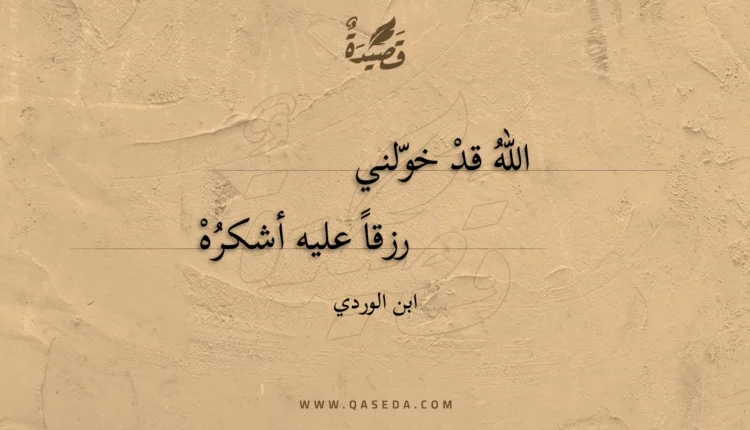 قَصِيْدَةٌ
اللهُ قدْ خوّلني
رزقاً عليه أشكرُهْ
ابن الوردي
WWW.QASEDA.COM